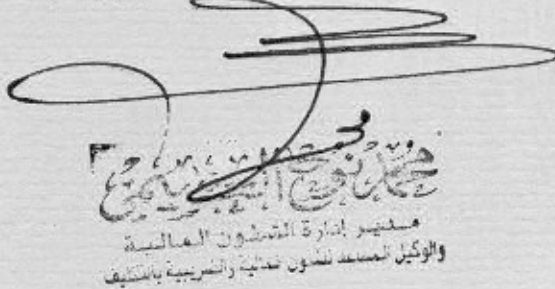 محمد
مدير إدارة الشئون المالية
والوكيل المساعد للشئون المالية والضريبية بالتكليف